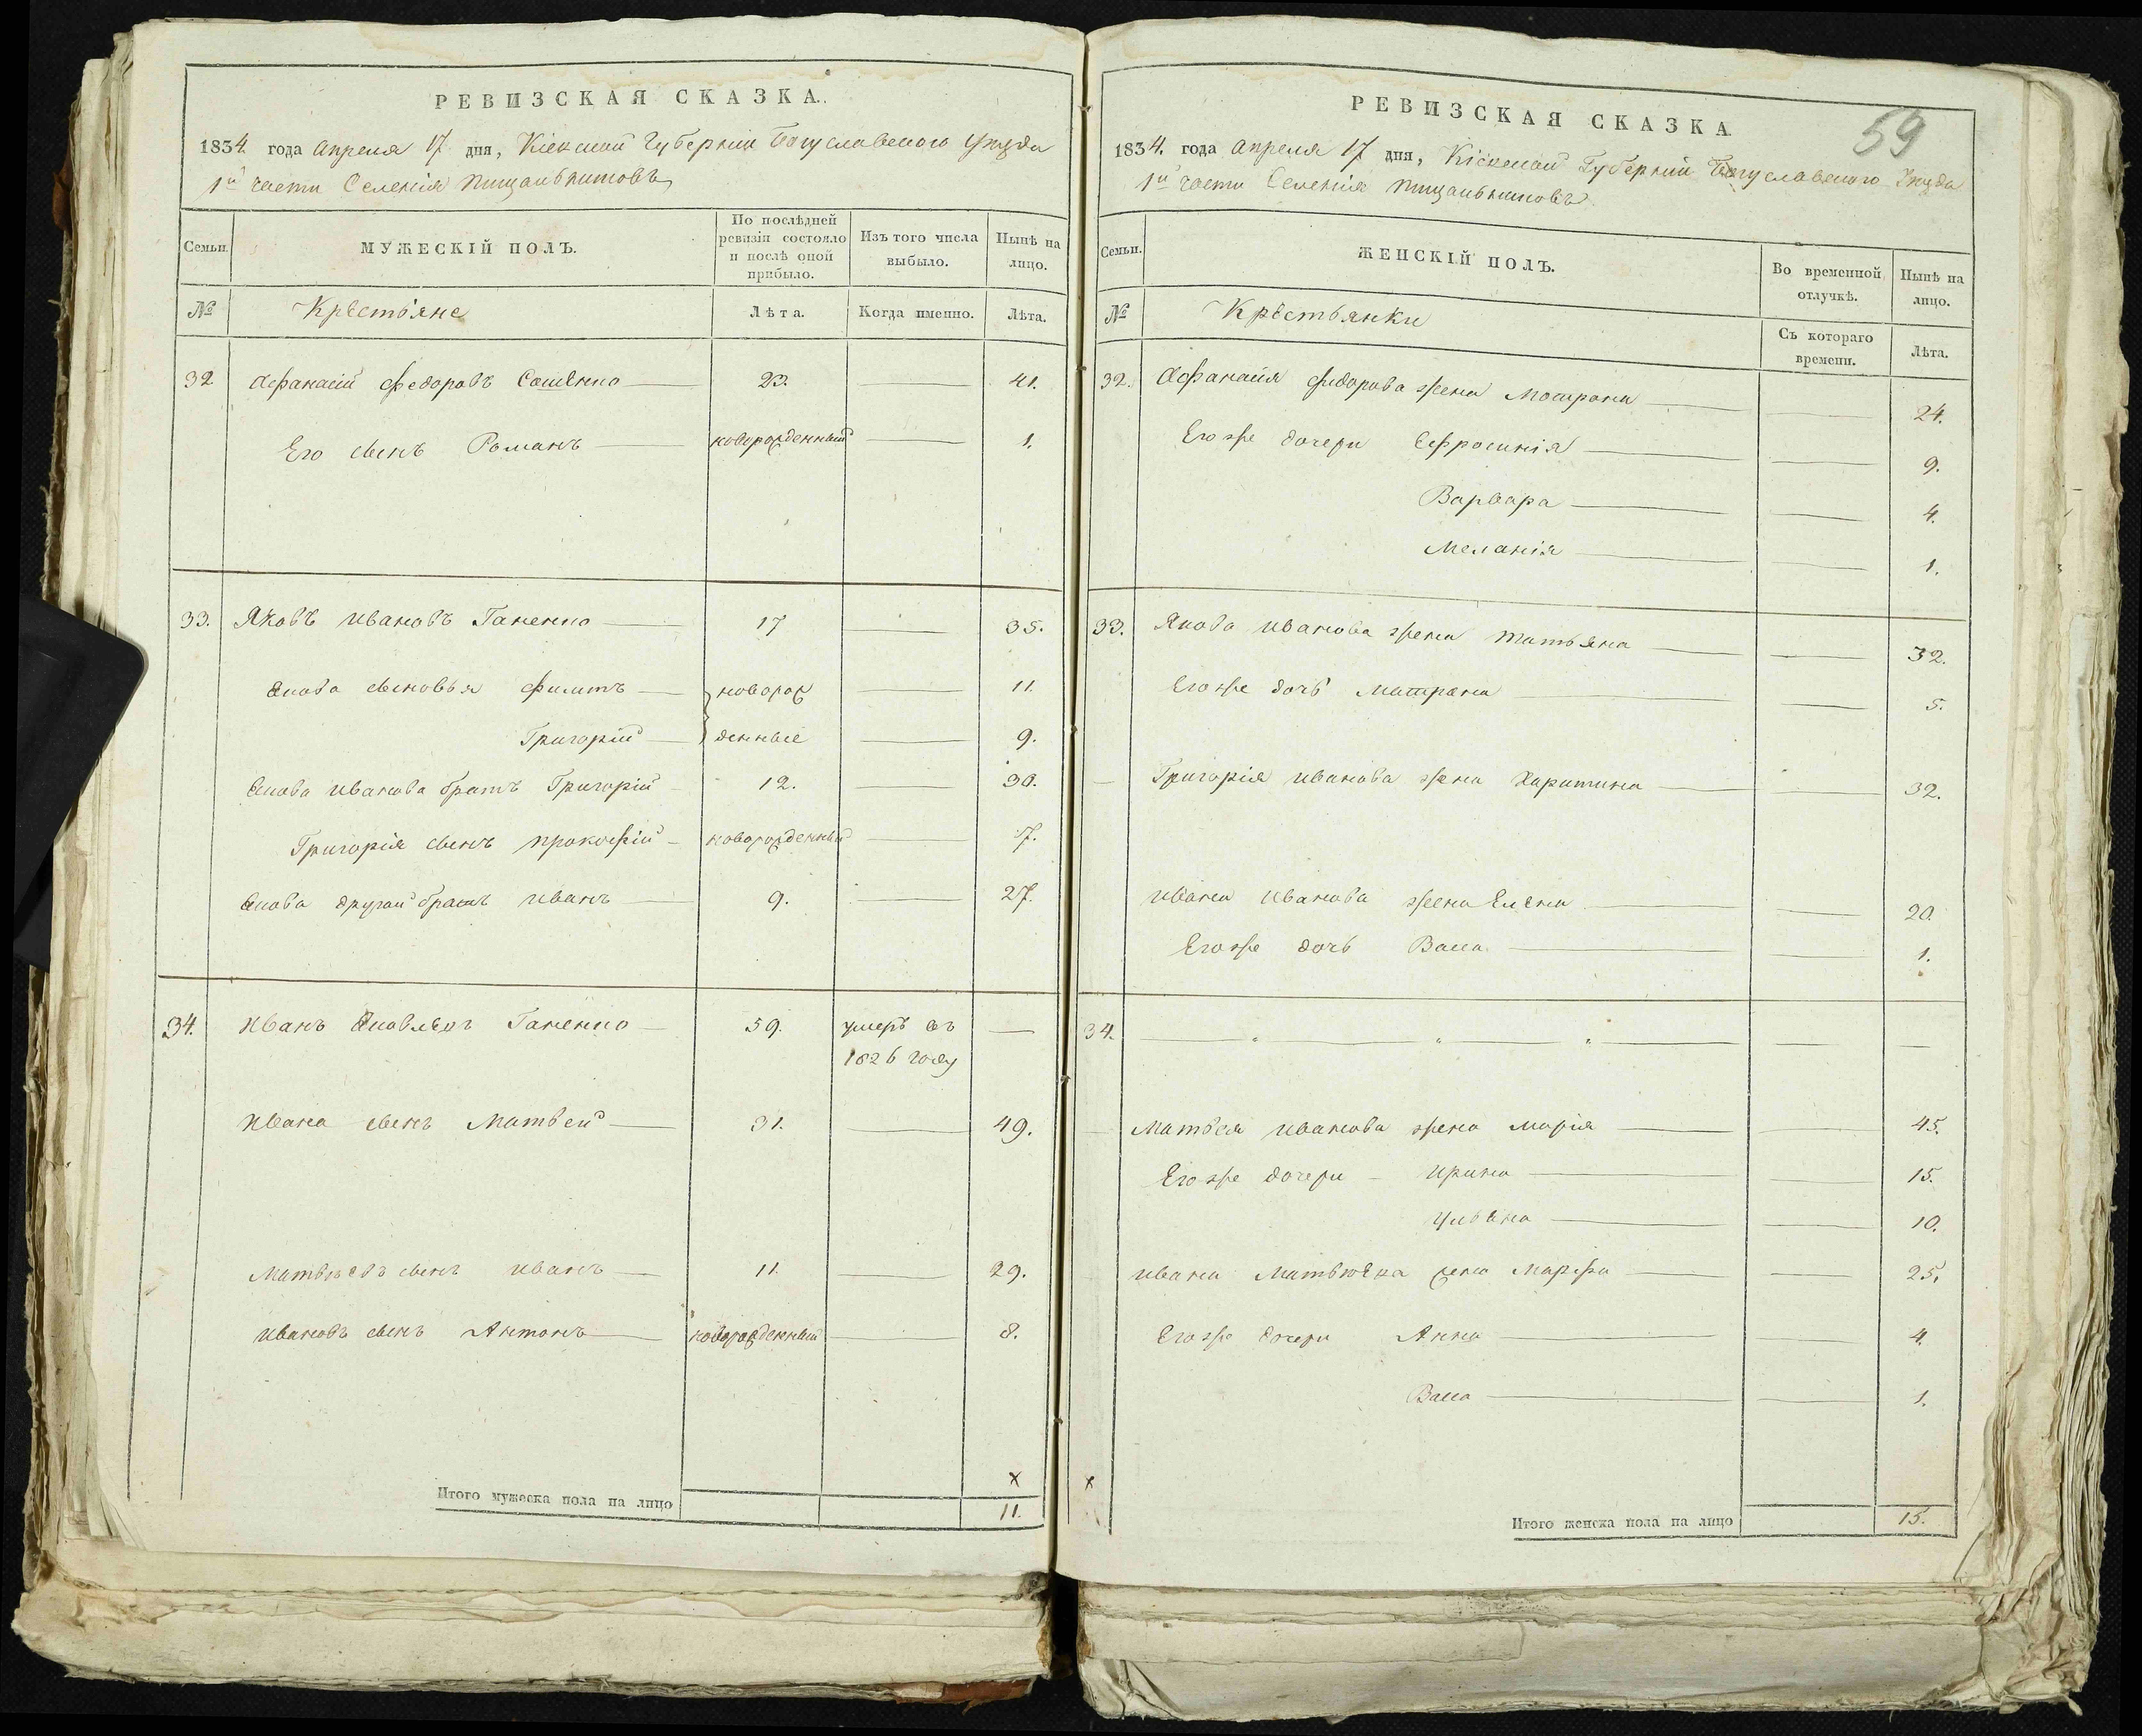 РЕВИЗСКАЯ СКАЗКА.
1834. года апреля 17 дня, Кіевской Губерніи Богуславского Уезда
1й части Селенія Пищальниковъ
Семьи. МУЖЕСКІЙ ПОЛЪ. По послѣдней ревизіи состояло и послѣ оной прибыло. Изъ того числа выбыло. Нынѣ на лицо.
№ Крестьяне Лѣта. Когда именно. Лѣта.
32 Афанасій Федоровъ 23. 41.
Его сынъ Романъ новорожденный 1.
33. Яковъ Ивановъ Ганенко 17 35.
Якова сыновья Филипъ новорож 11.
Григорій денные 9.
Якова Иванова братъ Григорій 12. 30.
Григорія сынъ Прокофій новорожденный 7.
Якова другой братъ Иванъ 9. 27.
34. Иванъ Яковлевъ Ганенко 59. умеръ въ
1826 году
Ивана сынъ Матвей 31. 49.
Матвѣевъ сынъ Иванъ 11. 29.
Ивановъ сынъ Антонъ новорожденный 8.
х
Итого мужеска пола на лицо 11.
59
РЕВИЗСКАЯ СКАЗКА
1834. года апреля 17 дня, Кіевской Губерніи Богуславского Уезда
1й части Селенія Пищальниковъ
Семьи. ЖЕНСКІЙ ПОЛЪ. Во временной отлучкѣ. Нынѣ на лицо.
№ Крестьянки Съ котораго времени. Лѣта.
32. Афанасія Федорова жена Мотрона 24.
Его же дочери Ефросинія 9.
Варвара 4.
Меланія 1.
33. Якова Иванова жена Татьяна 32.
Его же дочь Матрона 5.
Григорія Иванова жена Харитина 32.
Ивана Иванова жена Елена 20.
Его же дочь Васса 1.
34.
Матвея Иванова жена Марія 45.
Его же дочери Ирина 15.
Ульяна 10.
Ивана Матвѣева жена Марфа 25.
Его же дочери Анна 4.
Васса 1.
х
Итого женска пола на лицо 15.